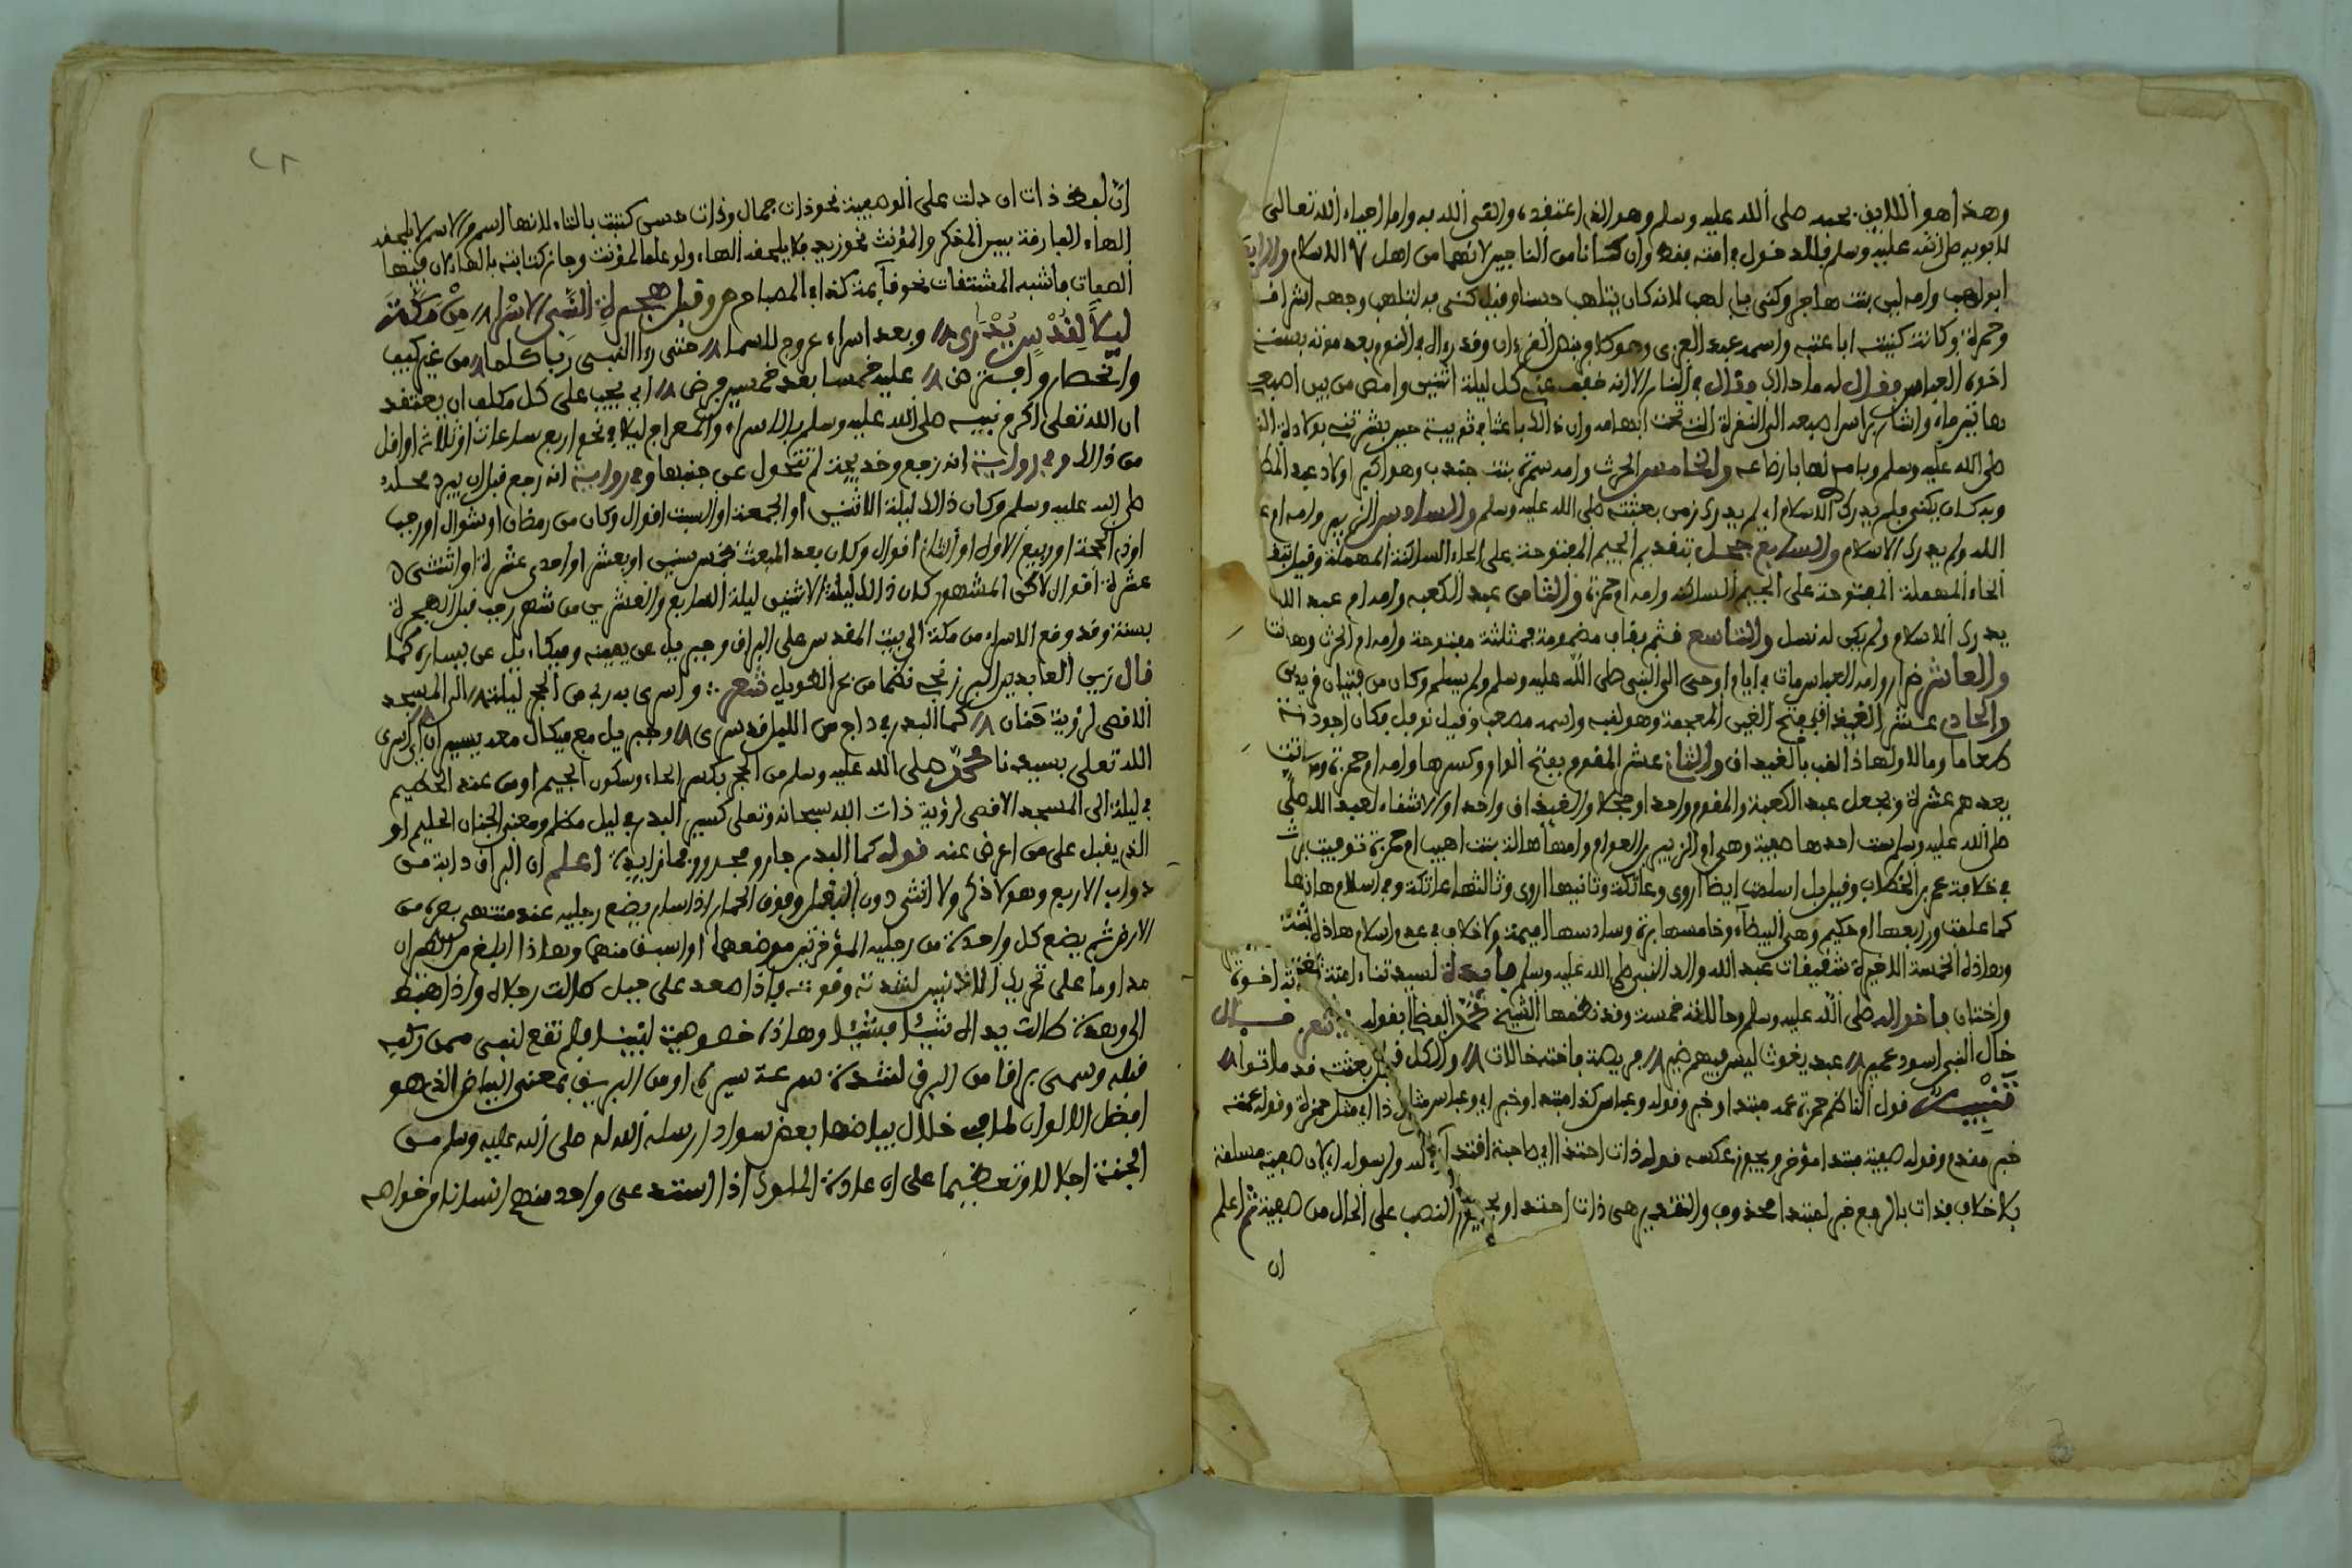 وهذا هو اللايق بحبه صلى الله عليه وسلم وهو الذي اعتقده والقى الله به واما احياء الله تعالى
لابويه صلى الله عليه وسلم فللدخول في امته فقط وان كانا من الناجين لانهما من اهل الاسلام والرابع
ابو لهب وامه لبنى بنت هاجر وكنى بابي لهب لانه كان يتلهب حسنا وقيل كنى به لتلهب وجهه اشراقا
وحمرة وكانت كنيته ابا عتبه واسمه عبد العزى وقد روي في النوم بعد موته بسنة
اخوه العباس فقال له ما حالك فقال في النار الا انه خفف عني كل ليلة اثنين وامص من بين اصبعي
هاتين ماء واشار براس اصبعه الى النقرة التي تحت ابهامه وان ذالك باعتاقي ثويبة حين بشرتني بولادة النبي
صلى الله عليه وسلم وبامري لها بارضاعه والخامس الحرث وامه سمرة بنت جندب وهو اكبر اولاد عبد المطلب
وبه كان يكنى ولم يدرك الاسلام اي لم يدرك زمن بعثته صلى الله عليه وسلم والسادس الزبير وامه ام
الله ولم يدرك الاسلام والسابع جحل بتقديم الجيم المفتوحة على الحاء الساكنة المهملة وقيل بتقديم
الحاء المهملة المفتوحة على الجيم الساكنة وامه ام حمزة والثامن عبد الكعبه وامه ام عبد الله
يدرك الاسلام ولم يكن له نسل والتاسع قثم بقاف مضمومة فمثلثة مفتوحة وامه ام الحرث وهات
والعاشر ضرار وامه ام العباس مات في ايام اوحى الى النبي صلى الله عليه وسلم ولم يسلم وكان من فتيان قريش
والحادي عشر الغيداق بفتح الغين المعجمة وهو لقبه واسمه مصعب وقيل نوفل وكان اجود
طعاما ومالا ولهاذا لقب بالغيداق والثاني عشر المقوم بفتح الواو وكسرها وامه ام حمزة
بعدهم عشرة ويجعل عبد الكعبة والمقوم واحدا وجحلا والغيداق واحدا
صلى الله عليه وسلم ست احدها صفية وهي ام الزبير بن العوام وامها هالة بنت اهيب ام حمزة توفيت
في خلافة عمر بن الخطاب وقيل بل اسلمت ايضا اروى وعاتكة وثانيها اروى وثالثها عاتكة وفي اسلام هاذين
كما علمت ورابعها ام حكيم وهي البيضاء وخامسها برة وسادسها اميمة ولا خلاف في عدم اسلام هاذه
وهاذه الخمسة الاخيرة شقيقات عبد الله والد النبي صلى الله عليه وسلم فايدة لسيدتنا امنة ثلاثة اخوة
واختان فاخواله صلى الله عليه وسلم وخالاته خمسة وقد نظمها الشيخ محمد بقوله شعر
خال النبي اسود عمير عبد يغوث ليس فيهم ضير فريصة فاخته خالات والكل قبل بعثته قد ماتوا
تنبيه قول الناظم حمزة عمه مبتدا وخبر وقوله وعباس كذا مبتدا وخبر اي وعباس مثل ذا اي مثل حمزة وقوله عمته
خبر مقدم وقوله صفية مبتدا مؤخر ويجوز عكسه قوله ذات احتذا اي صاحبة اقتداء لله ولرسوله لان صفية مسلمة
بلا خلاف فذات بالرفع خبر لمبتدا محذوف والتقدير هي ذات احتذا ويجوز النصب على الحال من صفية ثم اعلم
ان
ان لفظ ذات ان دلت على الوصفية نحو ذات جمال وذات حسن كتبت بالتاء لانها اسم والاسم لا يلحقه
الهاء الفارقة بين المذكر والمؤنث نحو زيد فلا يلحقه الهاء ولو علما لمؤنث وجاز كتابته بالهاء لان فيها
الصفات فاشبه المشتقات نحو قائمة كذا في المصباح وقبل هجرة النبي الاسرا من مكة
ليلا لقدس يدرى وبعد اسراء عروج للسما حتى راى النبي ربا كلما من غير كيف
وانحصار وافترض عليه خمسا بعد خمسين فرض اي يجب على كل مكلف ان يعتقد
ان الله تعلى اكرم نبيه صلى الله عليه وسلم بالاسراء والمعراج ليلا في نحو اربع ساعات او ثلاث او اقل
من ذالك وفي رواية انه رجع وخديجة لم تتحول عن جنبها وفي رواية انه رجع قبل ان يبرد محله
صلى الله عليه وسلم وكان ذالك ليلة الاثنين او الجمعة او السبت اقوال وكان من رمضان او شوال او رجب
او ذي الحجة او ربيع الاول او الثاني اقوال وكان بعد المبعث بخمس سنين او بعشر او احدى عشرة او اثنتى
عشرة اقوال لاكن المشهور كان ذالك ليلة الاثنين ليلة السابع والعشرين من شهر رجب قبل الهجرة
بسنة وقد وقع الاسراء من مكة الى بيت المقدس على البراق وجبريل عن يمينه وميكاءيل عن يساره كما
قال زين العابدين البرزنجي نظما من بحر الطويل شعر واسرى به ربي من الحجر ليلة الى المسجد
الاقصى لرؤية حنان كما البدر في داج من الليل قد سرى وجبريل مع ميكال معه يسيران اي اسرى
الله تعلى بسيدنا محمد صلى الله عليه وسلم من الحجر بكسر الحاء وسكون الجيم اي من عند الحطيم
في ليلة الى المسجد الاقصى لرؤية ذات الله سبحانه وتعلى كسير البدر في ليل مظلم ومعنى الحنان الحليم او
الذي يقبل على من اعرض عنه قوله كما البدر جار ومجرور وما زايدة اعلم ان البراق دابة من
دواب الاربع وهو لا ذكر ولا انثى دون البغل وفوق الحمار اذا سار يضع رجليه عند منتهى بصره من
الارض ثم يضع كل واحدة من رجليه المؤخرتين موضعهما او اسبق منهما وهاذا ابلغ
مداوما على تحريك الاذنين لشدة قوته فاذا صعد على جبل طالت رجلاه واذا هبط
الى وهدة طالت يداه شيئا فشيئا وهاذه خصوصية لنبينا فلم تقع لنبي ممن ركبه
قبله وسمي براقا من البرق لشدة سرعة سيره او من البريق بمعنى البياض الذي هو
افضل الالوان لما في خلال بياضها بعض سواد ارسله الله له صلى الله عليه وسلم من
الجنة اجلالا وتعظيما على عادة الملوك اذا استدعى واحد منهم انسانا من خواصه